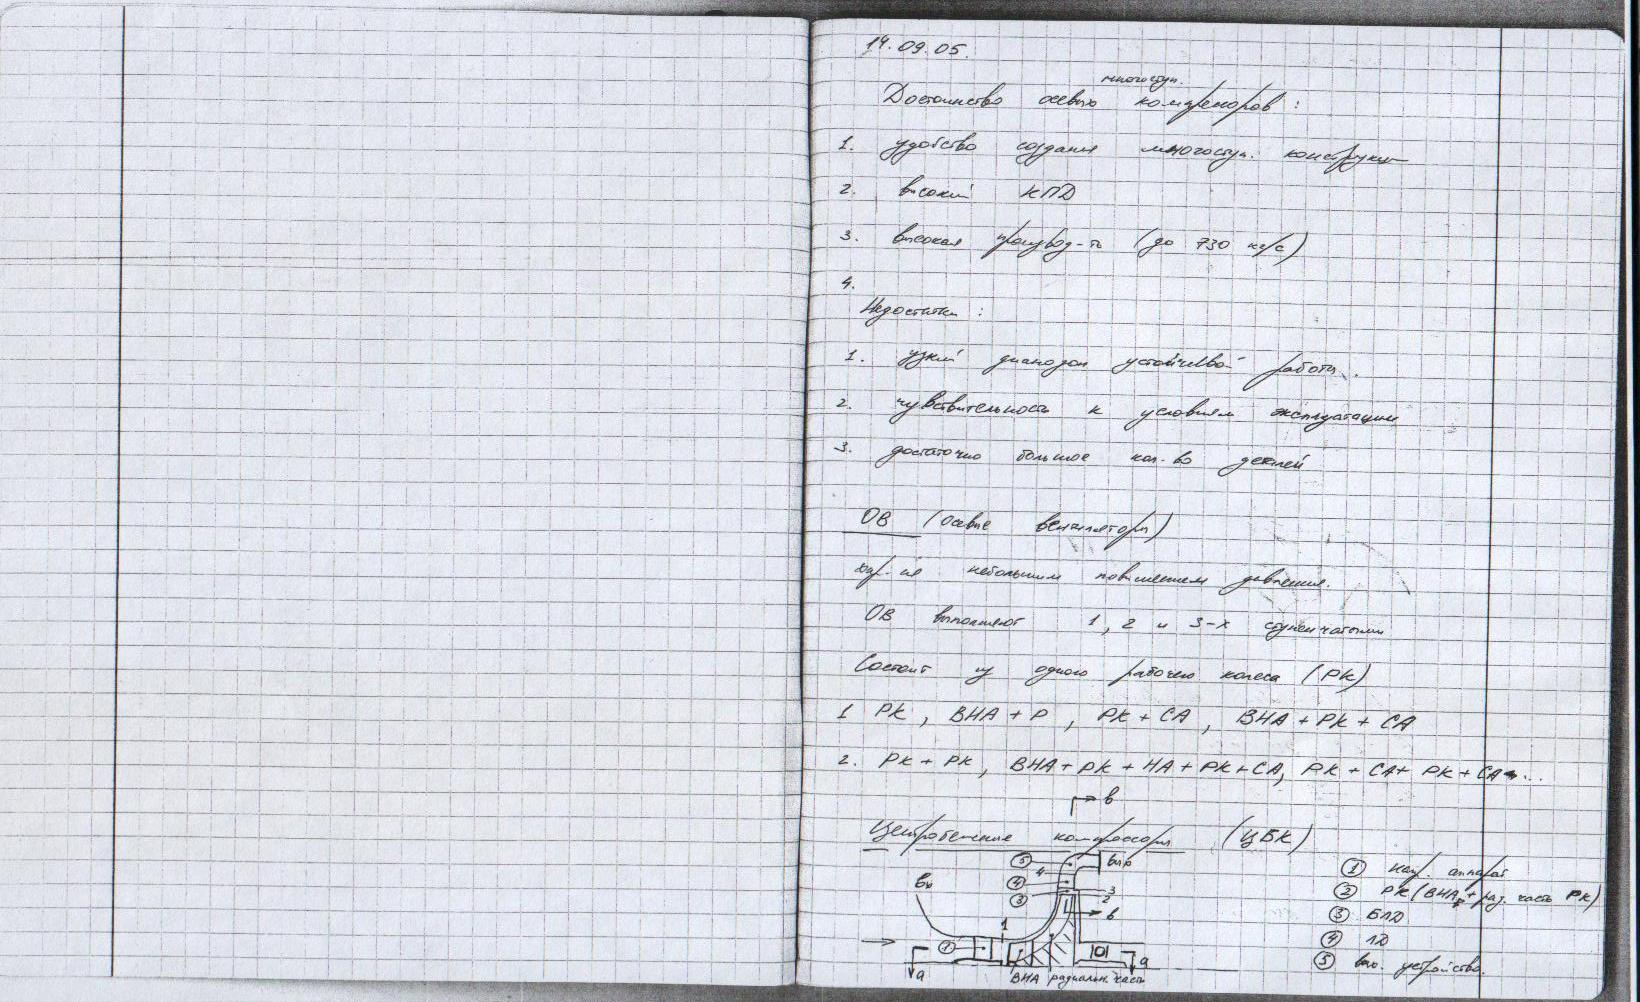 14.09.05.
многоступ.
Достоинство осевых компрессоров :
1. удобство создания многоступ. конструкции
2. высокий КПД
3. высокая производ-ть (до 730 кг/с)
4.
Недостатки :
1. узкий диапазон устойчивой работы.
2. чувствительность к условиям эксплуатации
3. достаточно большое кол-во деталей
ОВ (осевые вентиляторы)
хар-ся небольшим повышением давления.
ОВ выполняют 1, 2 и 3-х ступенчатыми
Состоит из одного рабочего колеса (РК)
1 РК, ВНА + Р, РК + СА, ВНА + РК + СА
2. РК + РК, ВНА + РК + НА + РК + СА, РК + СА + РК + СА...
в
Центробежные компрессоры (ЦБК)
5 4 вых
вх 4 3
3 2
в
1
1
а ВНА радиальн. часть а
1 нап. аппарат
2 РК (ВНАр + рад. часть РК)
3 БЛД
4 ЛД
5 вых. устройство.